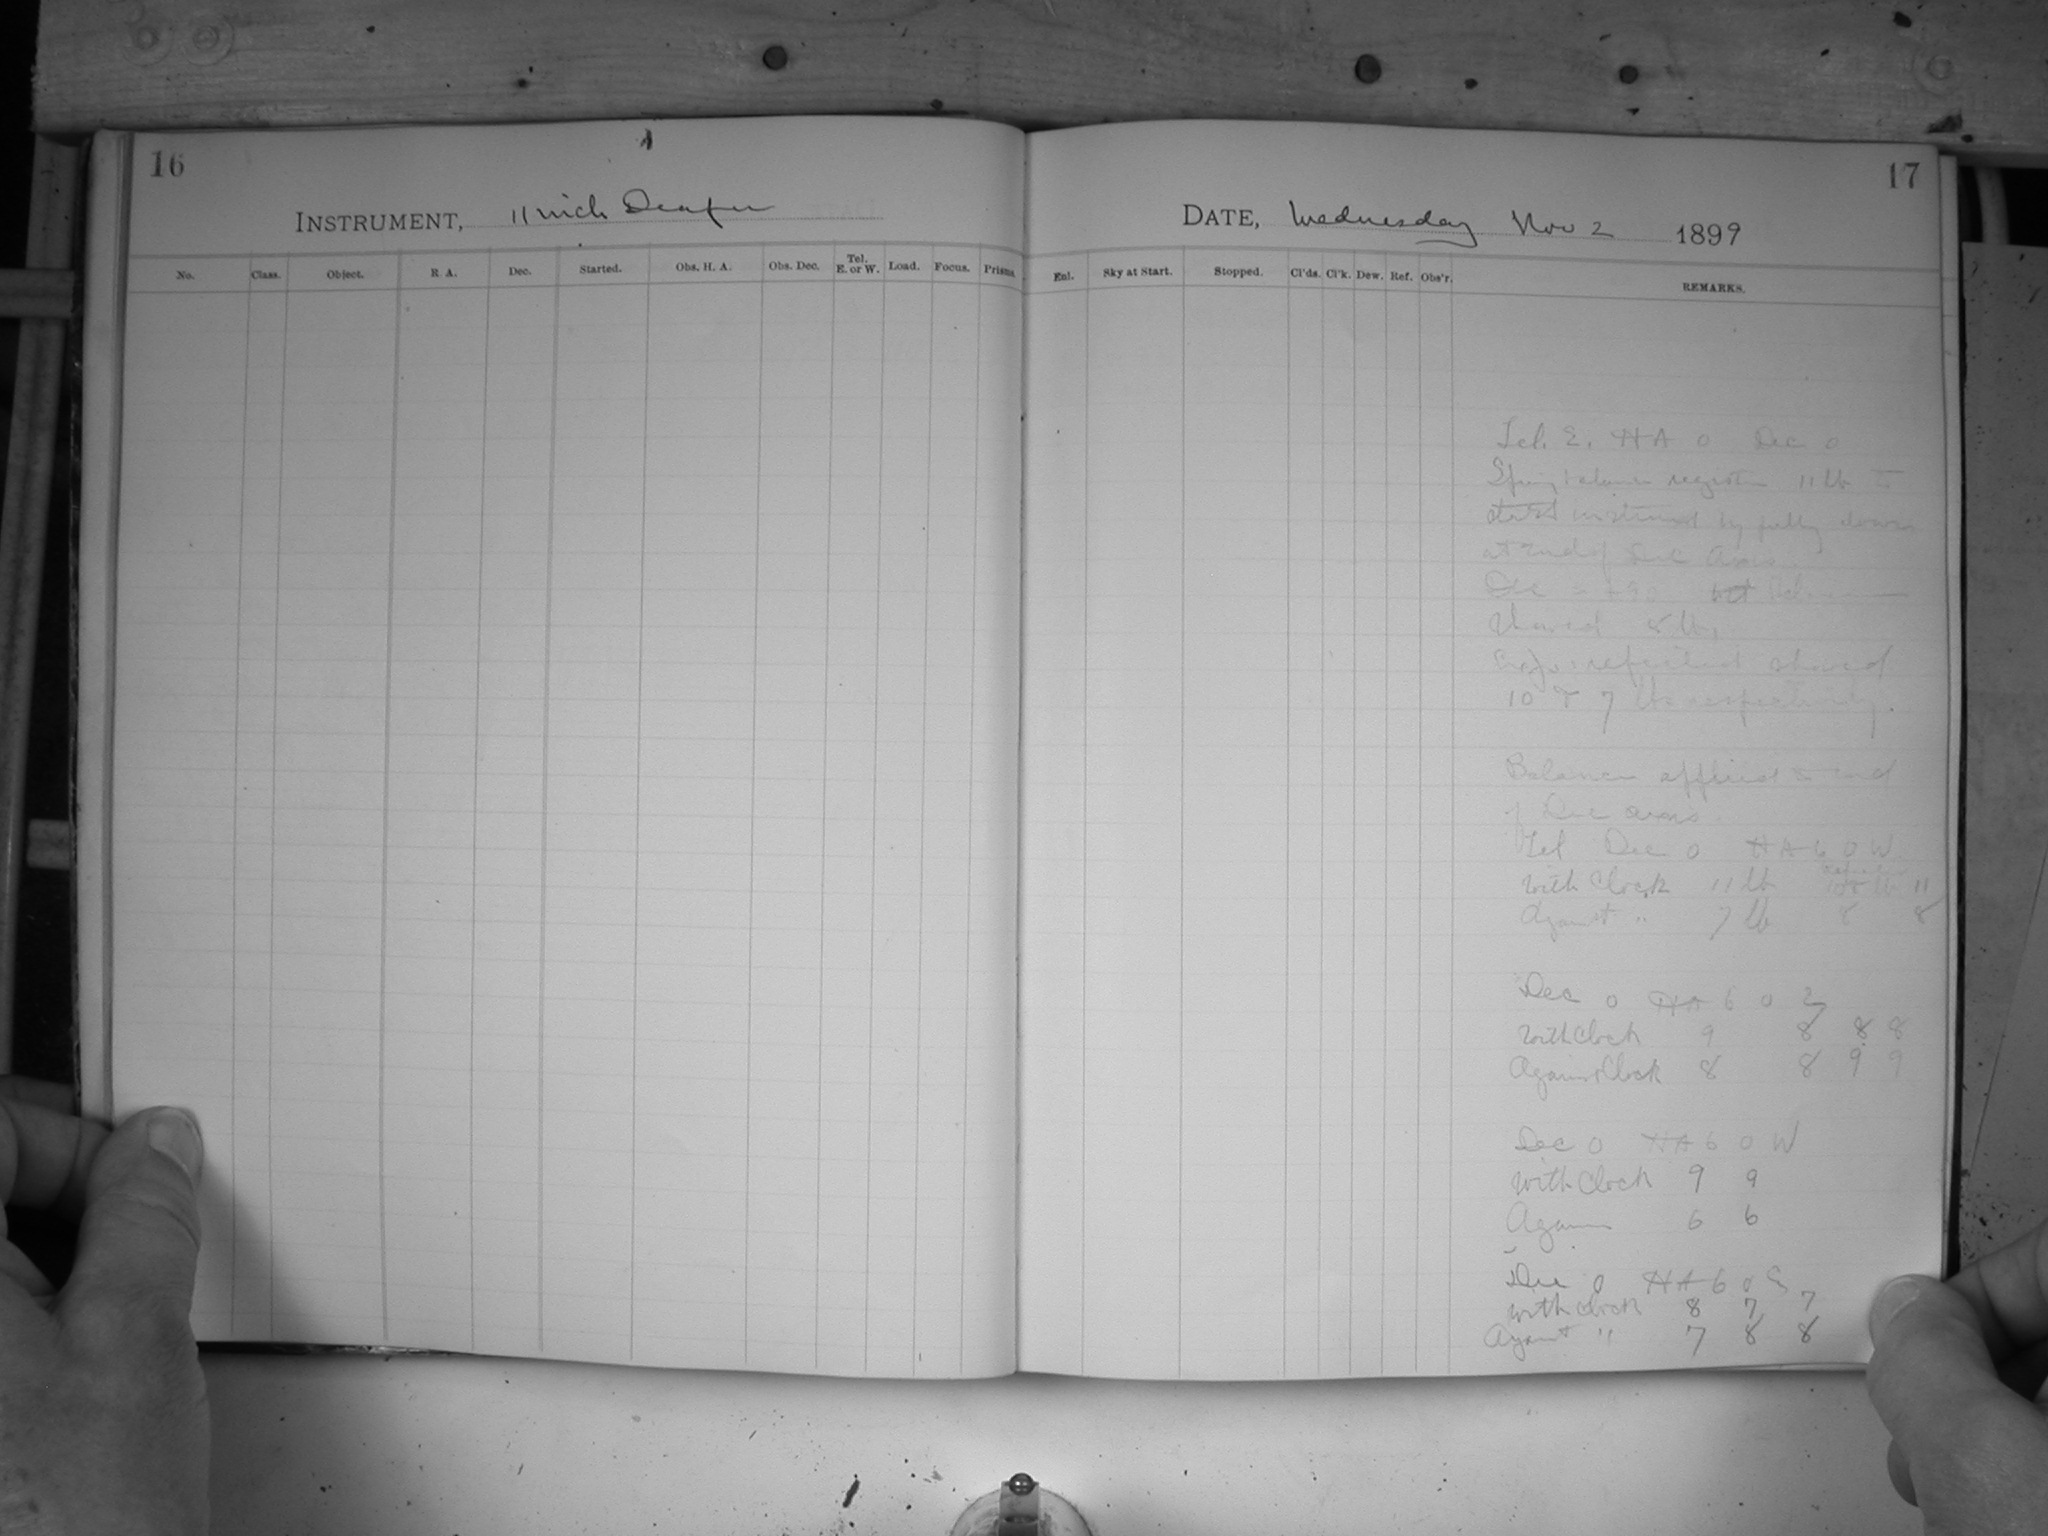 16
INSTRUMENT, 11 inch Draper
No. Class. Object. R. A. Dec. Started. Obs. H. A. Obs. Dec. Tel. E. or W. Load. Focus. Prisms.
17
DATE, Wednesday Nov 2 1899
Enl. Sky at Start. Stopped. Cl'ds. Cl'k. Dew. Ref. Obs'r. REMARKS.
Tel. E. HA 0 Dec 0
Spring balance registers 11 lb to
start instrument by pulling down
at end of Dec axis.
Dec = +90 balance
showed 8 lbs.
repeated showed
10 & 7 lbs respectively.
Balance applied to end
of Dec axis.
Tel Dec 0 HA 6 0 W.
with Clock 11 lb 11
Against " 7 lb 8 8
Dec 0 HA 6 0 E
with Clock 9 8 8 8
Against Clock 8 8 9 9
Dec 0 HA 6 0 W
with Clock 9 9
Again 6 6
Dec 0 HA 6 0 E
with clock 8 7 7
Against " 7 8 8